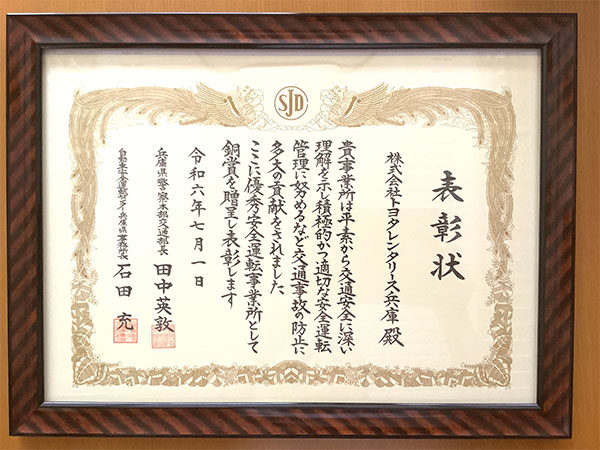 SJD
表彰状
株式会社トヨタレンタリース兵庫 殿
貴事業所は平素から交通安全に深い
理解を示し積極的かつ適切な安全運転
管理に努めるなど交通事故の防止に
多大の貢献をされました
ここに優秀安全運転事業所として
銅賞を贈呈し表彰します
令和六年七月一日
兵庫県警察本部交通部長 田中英敦
自動車安全運転センター兵庫県事務所長 石田 充